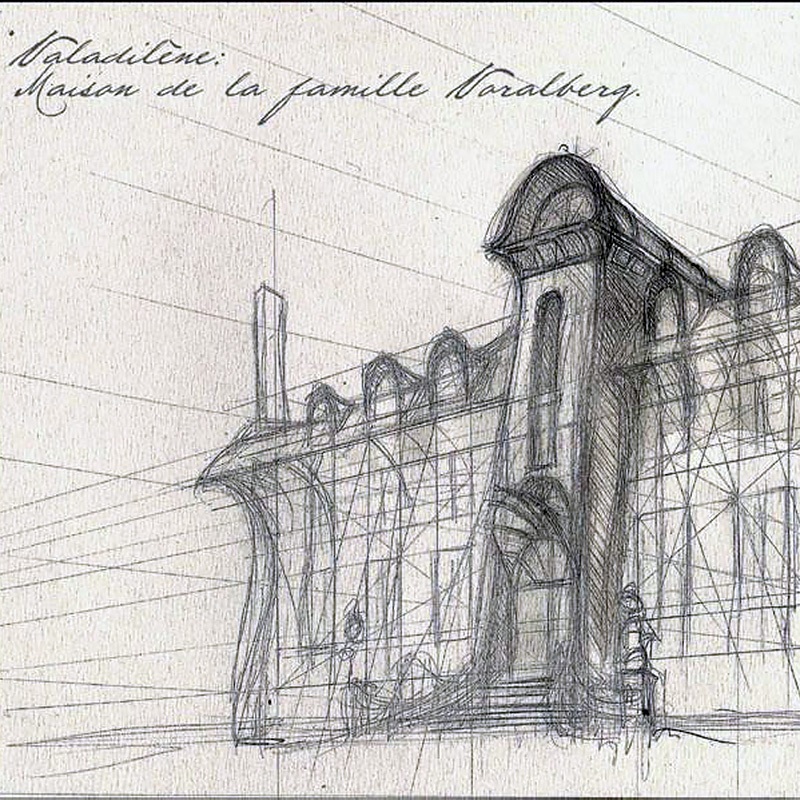 Valadilène:
Maison de la famille Voralberg.